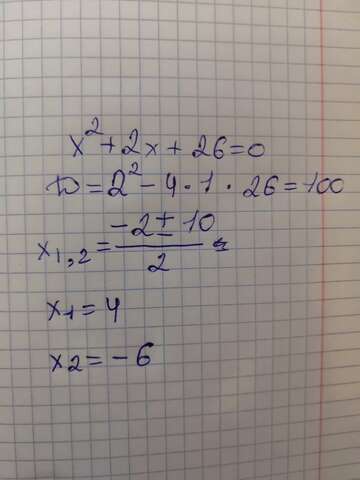 x² + 2x + 26 = 0
D = 2² - 4 · 1 · 26 = -100
x₁,₂ = (-2 ± 10) / 2
x₁ = 4
x₂ = -6